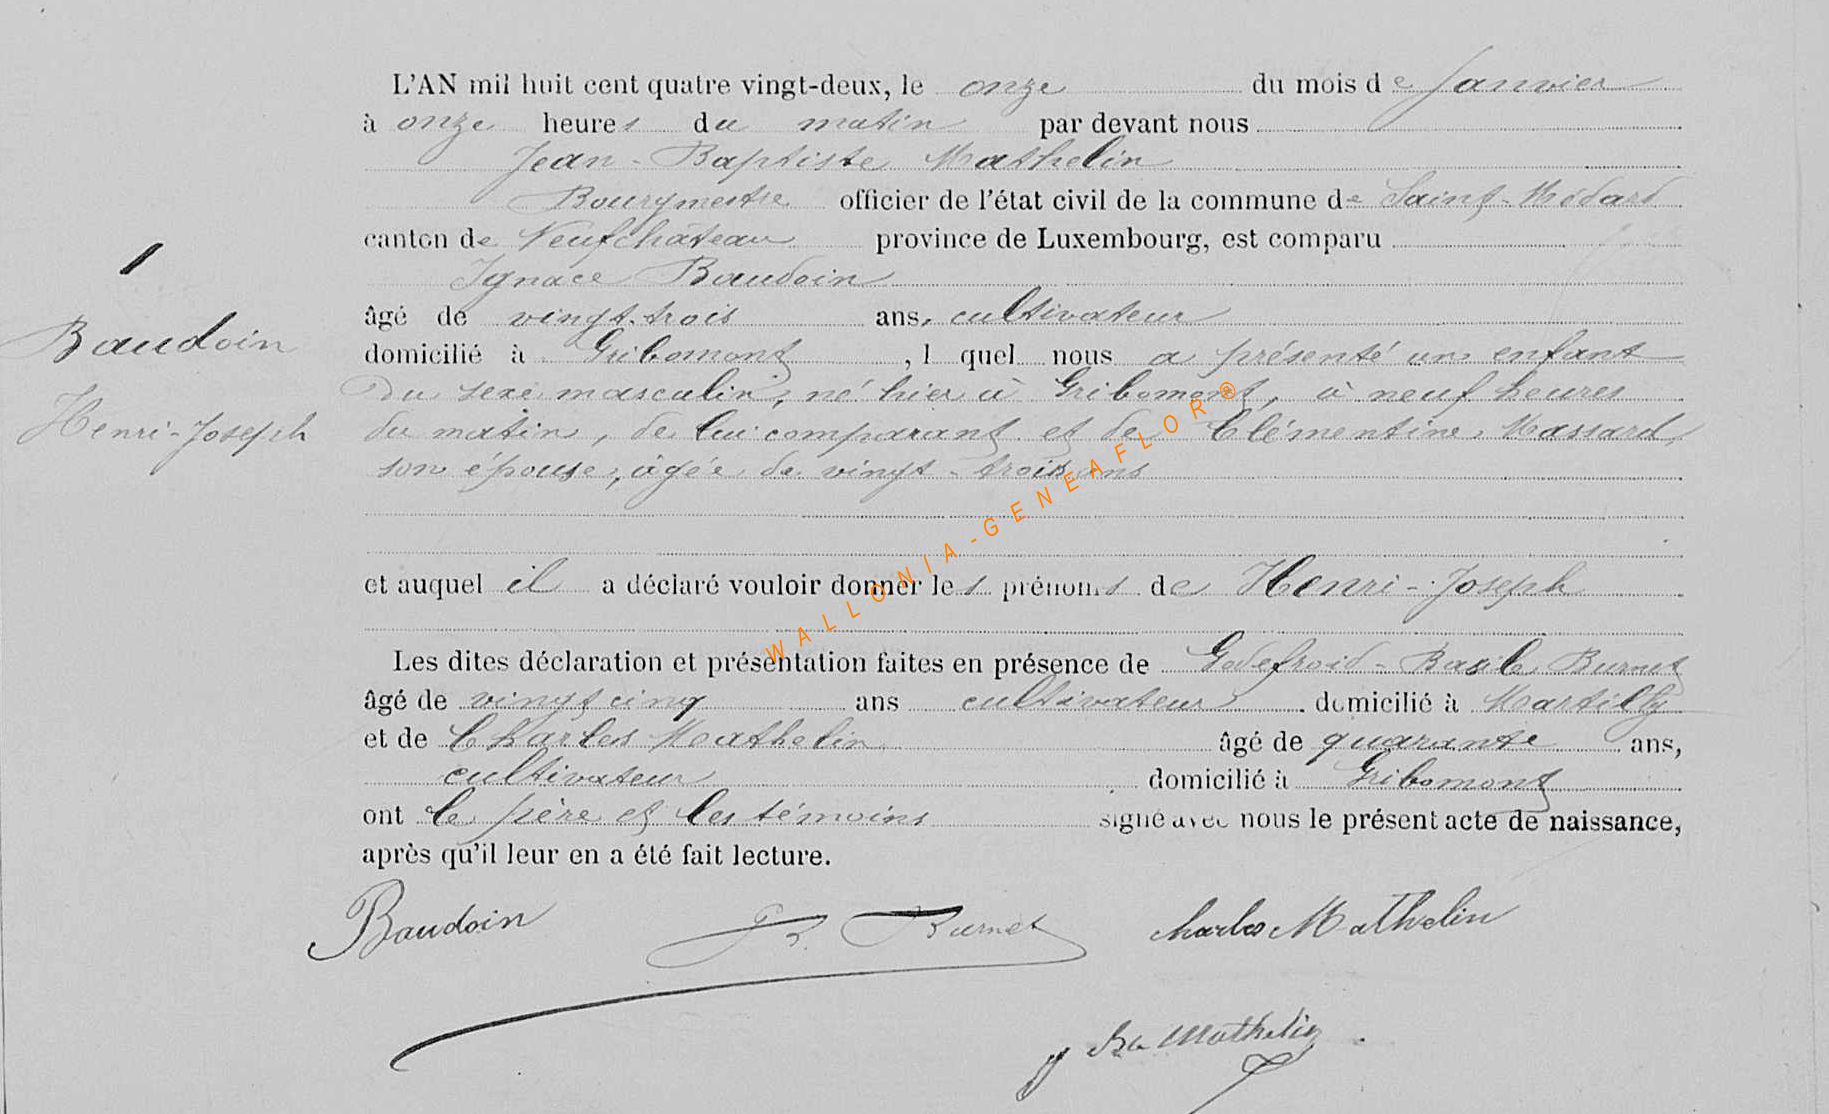 L'AN mil huit cent quatre vingt-deux, le onze du mois de Janvier
à onze heures du matin par devant nous
Jean-Baptiste Mathelin
Bourgmestre officier de l'état civil de la commune de Saint-Médard
canton de Neufchâteau province de Luxembourg, est comparu
Ignace Baudoin
âgé de vingt-trois ans, cultivateur
domicilié à Gribomont, l quel nous a présenté un enfant
du sexe masculin, né hier à Gribomont, à neuf heures
du matin, de lui comparant et de Clémentine Massard,
son épouse, âgée de vingt-trois ans
et auquel il a déclaré vouloir donner les prénoms de Henri-Joseph
Les dites déclaration et présentation faites en présence de Godefroid-Basile Burnet
âgé de vingt cinq ans cultivateur domicilié à Martilly
et de Charles Mathelin âgé de quarante ans,
cultivateur domicilié à Gribomont
ont le père et les témoins signé avec nous le présent acte de naissance,
après qu'il leur en a été fait lecture.
1
Baudoin
Henri-Joseph
Baudoin
B. Burnet
Charles Mathelin
J Bte Mathelin
WALLONIA-GENEAFLOR®